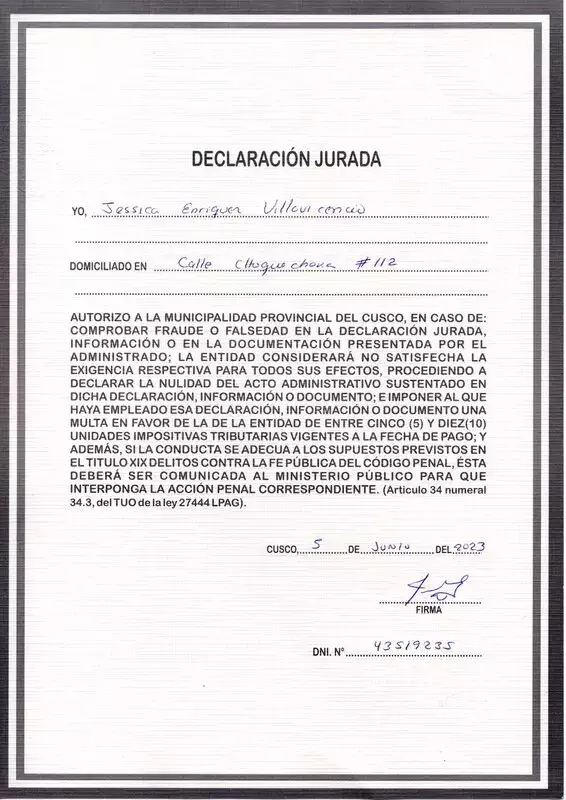 DECLARACIÓN JURADA
YO, Jessica Enriquez Villavicencio
DOMICILIADO EN Calle Choquechaca #112
AUTORIZO A LA MUNICIPALIDAD PROVINCIAL DEL CUSCO, EN CASO DE:
COMPROBAR FRAUDE O FALSEDAD EN LA DECLARACIÓN JURADA,
INFORMACIÓN O EN LA DOCUMENTACIÓN PRESENTADA POR EL
ADMINISTRADO; LA ENTIDAD CONSIDERARÁ NO SATISFECHA LA
EXIGENCIA RESPECTIVA PARA TODOS SUS EFECTOS, PROCEDIENDO A
DECLARAR LA NULIDAD DEL ACTO ADMINISTRATIVO SUSTENTADO EN
DICHA DECLARACIÓN, INFORMACIÓN O DOCUMENTO; E IMPONER AL QUE
HAYA EMPLEADO ESA DECLARACIÓN, INFORMACIÓN O DOCUMENTO UNA
MULTA EN FAVOR DE LA DE LA ENTIDAD DE ENTRE CINCO (5) Y DIEZ(10)
UNIDADES IMPOSITIVAS TRIBUTARIAS VIGENTES A LA FECHA DE PAGO; Y
ADEMÁS, SI LA CONDUCTA SE ADECUA A LOS SUPUESTOS PREVISTOS EN
EL TITULO XIX DELITOS CONTRA LA FE PÚBLICA DEL CÓDIGO PENAL, ÉSTA
DEBERÁ SER COMUNICADA AL MINISTERIO PÚBLICO PARA QUE
INTERPONGA LA ACCIÓN PENAL CORRESPONDIENTE. (Articulo 34 numeral
34.3, del TUO de la ley 27444 LPAG).
CUSCO, 5 DE Junio DEL 2023
FIRMA
DNI. N° 43519235